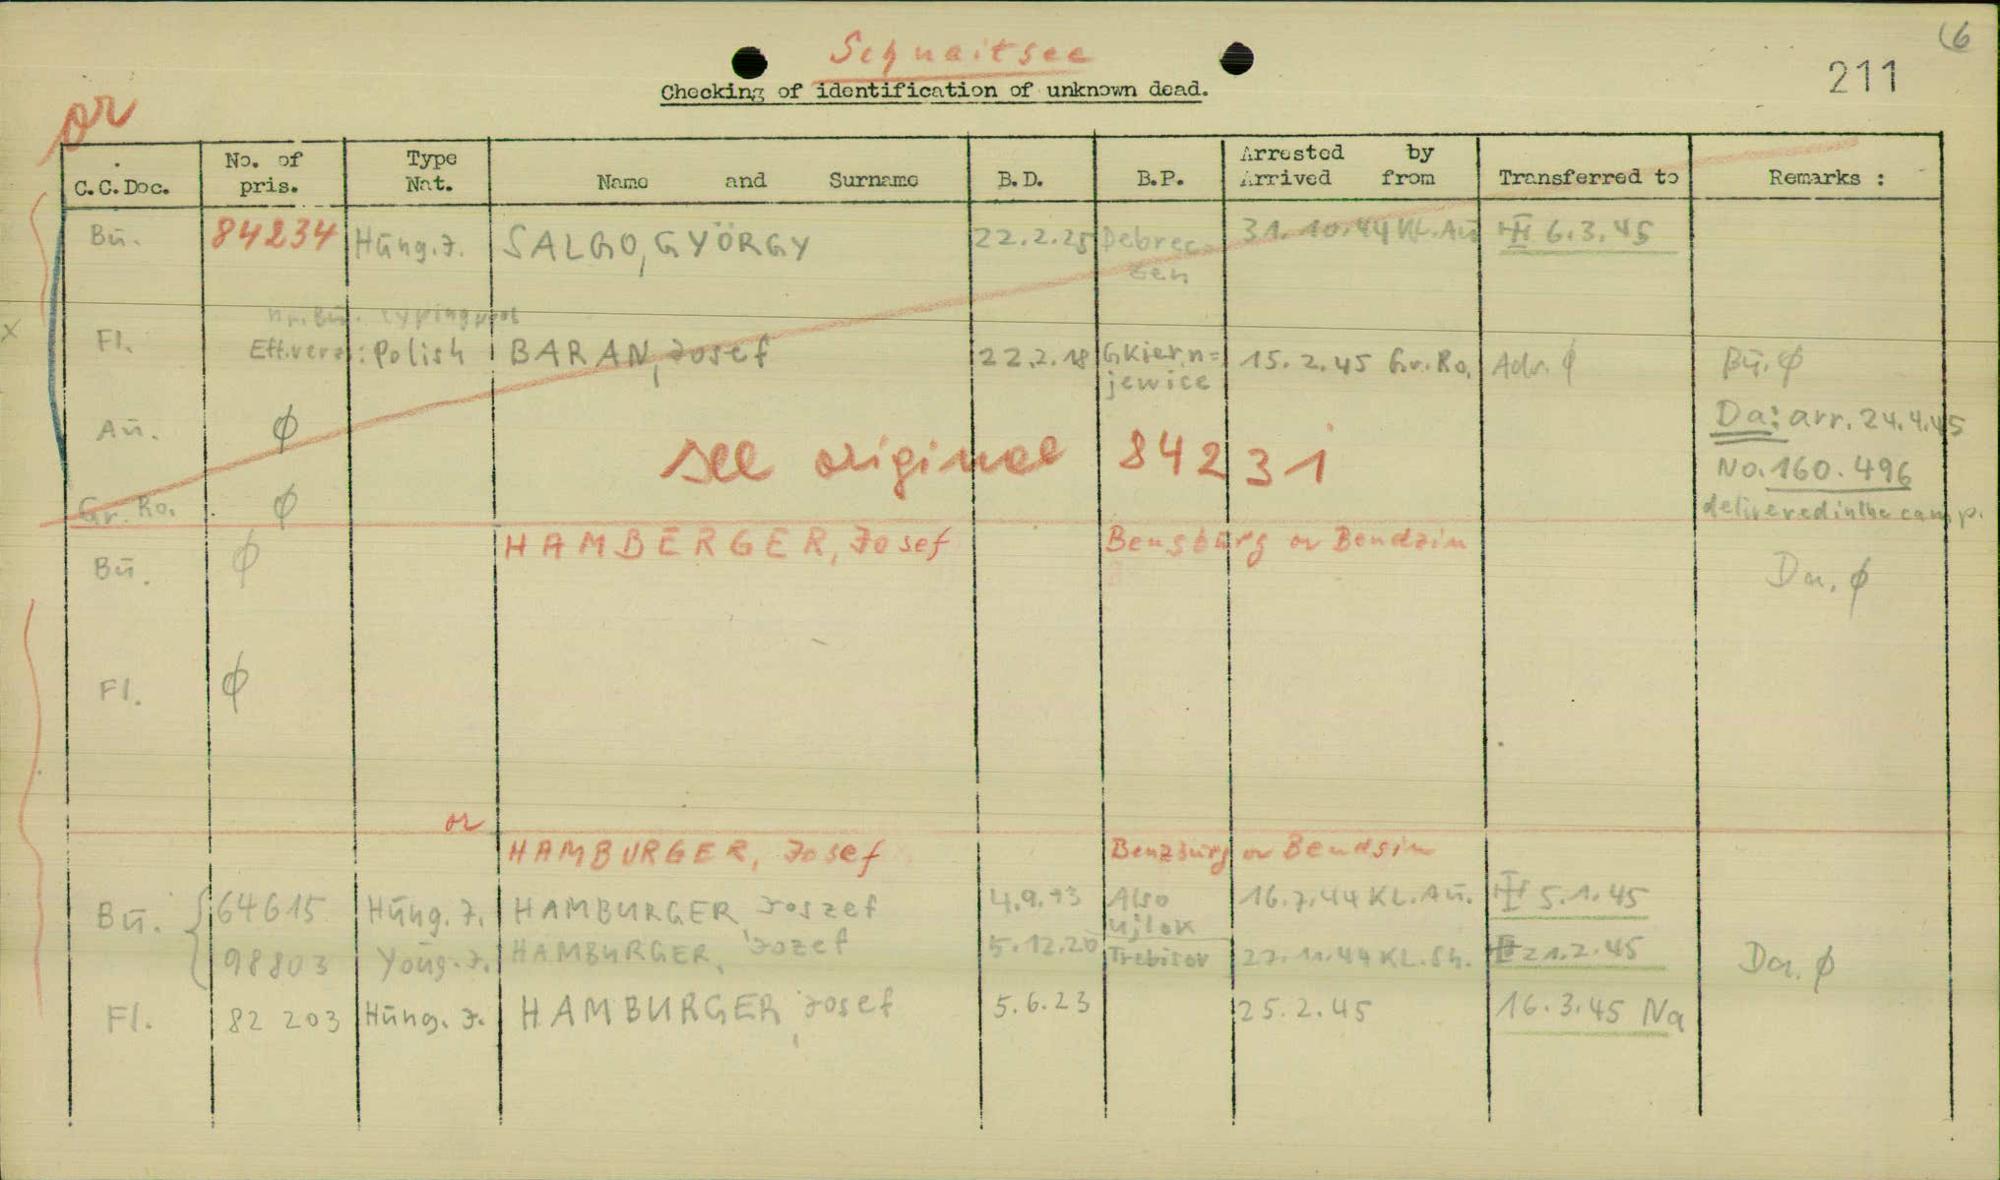 (6
Schnaitsee
211
Checking of identification of unknown dead.
or
C.C.Doc. No. of pris. Type Nat. Name and Surname B.D. B.P. Arrested by Arrived from Transferred to Remarks :
Bū. 84234 Hūng.J. SALGO, GYÖRGY 22.2.25 Debrec- zen 31.10.44 KL.Aū III 6.3.45
x
Fl. Eff.verz: Polish BARAN, Josef 22.2.18 Gkiern= jewice 15.2.45 Gr.Ro. Adr. ϕ Bū. ϕ
Aū. ϕ Da: arr. 24.4.45
see original 84231 No. 160.496
Gr. Ro. ϕ delivered in the camp.
HAMBERGER, Josef Bensburg or Bendzin
Bū. ϕ Da. ϕ
Fl. ϕ
or
HAMBURGER, Josef Benzburg or Bendsin
Bū. 64615 Hūng.J. HAMBURGER Joszef 4.9.13 Also ujlak 16.7.44 KL.Aū. III 5.1.45
98803 Yoūg.J. HAMBURGER, Jozef 5.12.20 Trebisov 27.11.44 KL.Sh. 21.2.45 Da. ϕ
Fl. 82 203 Hūng.J. HAMBURGER, Josef 5.6.23 25.2.45 16.3.45 Na